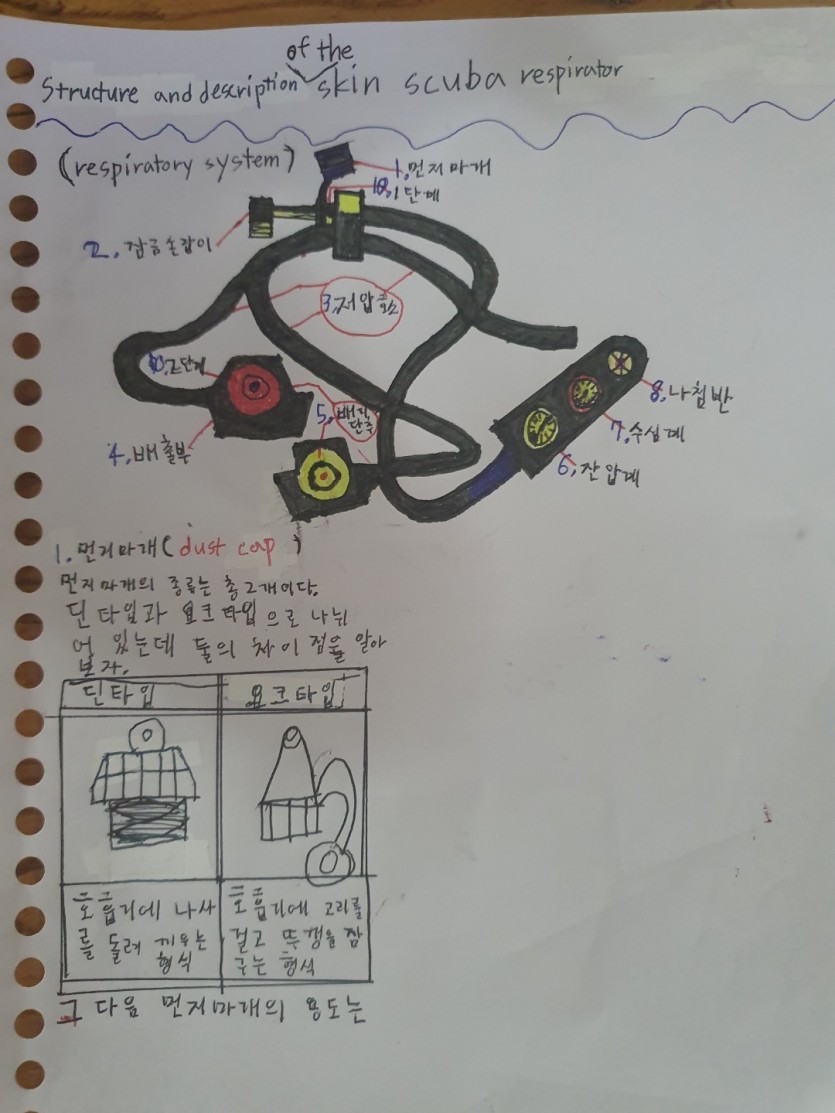 of the
Structure and description skin scuba respirator
(respiratory system)
1. 먼지마개
10. 1단계
2. 잠금손잡이
3. 저압호스
10. 2단계
5. 배지단추
4. 배출부
8. 나침반
7. 수심계
6. 잔압계
1. 먼지마개(dust cap)
먼지마개의 종류는 총 2개이다.
딘타입과 요크타입으로 나뉘
어 있는데 둘의 차이점을 알아
보자.
딘타입 요크타입
호흡기에 나사
를 돌려 끼우는
형식
호흡기에 고리를
걸고 뚜껑을 잠
구는 형식
그 다음 먼지마개의 용도는